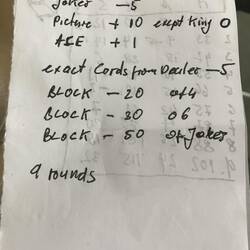 Joker -5
Picture + 10 exept King 0
ACE + 1
exact Cards from Dealer -5
BLOCK - 20 of 4
BLOCK - 30 of 6
BLOCK - 50 of Joker
9 rounds